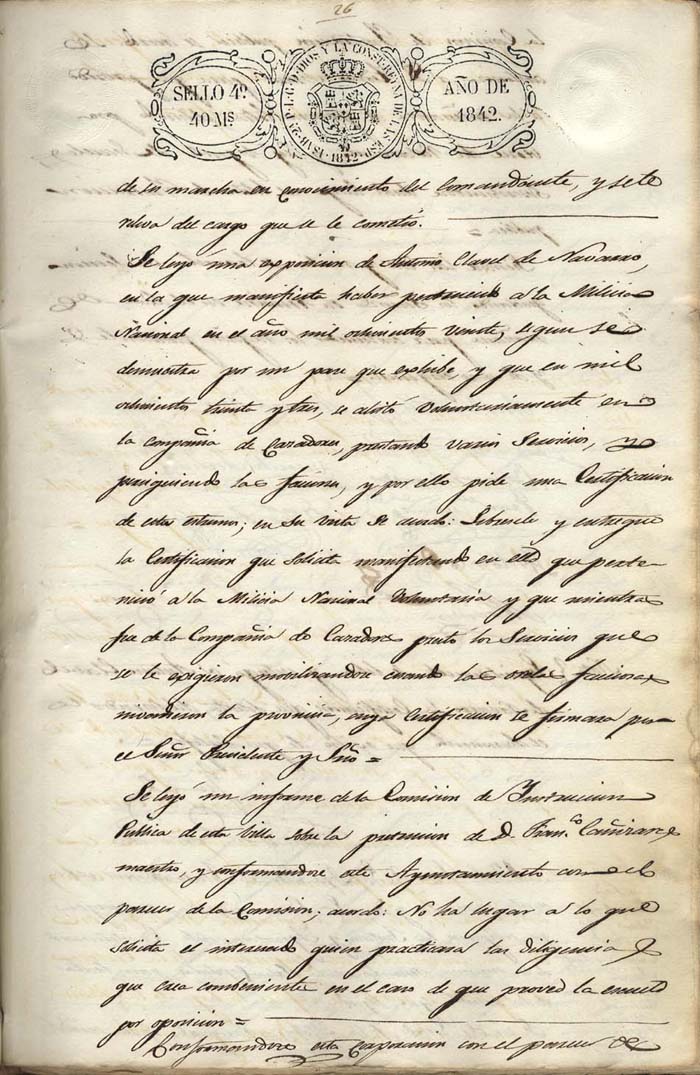 26
SELLO 4º.
40 Ms
ISAB. 2ª. P. L. G. D DIOS Y LA CONST. REYNA DE LAS ESP. 1842
AÑO DE
1842.
de su marcha en conocimiento del Comandante, y se le
releva del cargo que se le cometio.
Se leyó una exposicion de Antonio Clavel de Navarro,
en la que manifiesta haber pertenecido á la Milicia
Nacional en el año mil ochocientos veinte, segun se
demuestra por un pase que exhibe, y que en mil
ochocientos treinta y tres, se alistó voluntariamente en
la compañia de Cazadores, prestando varios Servicios, y
persiguiendo las faciones, y por ello pide una Certificacion
de estos estremos; en su vista se acordó: Librese y entregue
la Certificacion que solicita manifestando en ella que perte-
neció á la Milicia Nacional Voluntaria y que mientras
fue de la Compañia de Cazadores prestó los Servicios que
se le exigieron movilizandose cuando las ordas faciosas
nivadieron la provincia, cuya Certificacion se firmara por
el Señor Presidente y Srio =
Se leyó un informe de la Comision de Instruccion
Publica de esta Villa sobre la pretencion de D. Fran.co Cañizares
maestro, y conformandose este Ayuntamiento con el
parecer de la Comision; acordo: No ha lugar á lo que
solicita el interesado quien practicara las diligencias
que crea combeniente en el caso de que provea la escuela
por oposicion =
Conformandose esta Corporacion con el parecer de